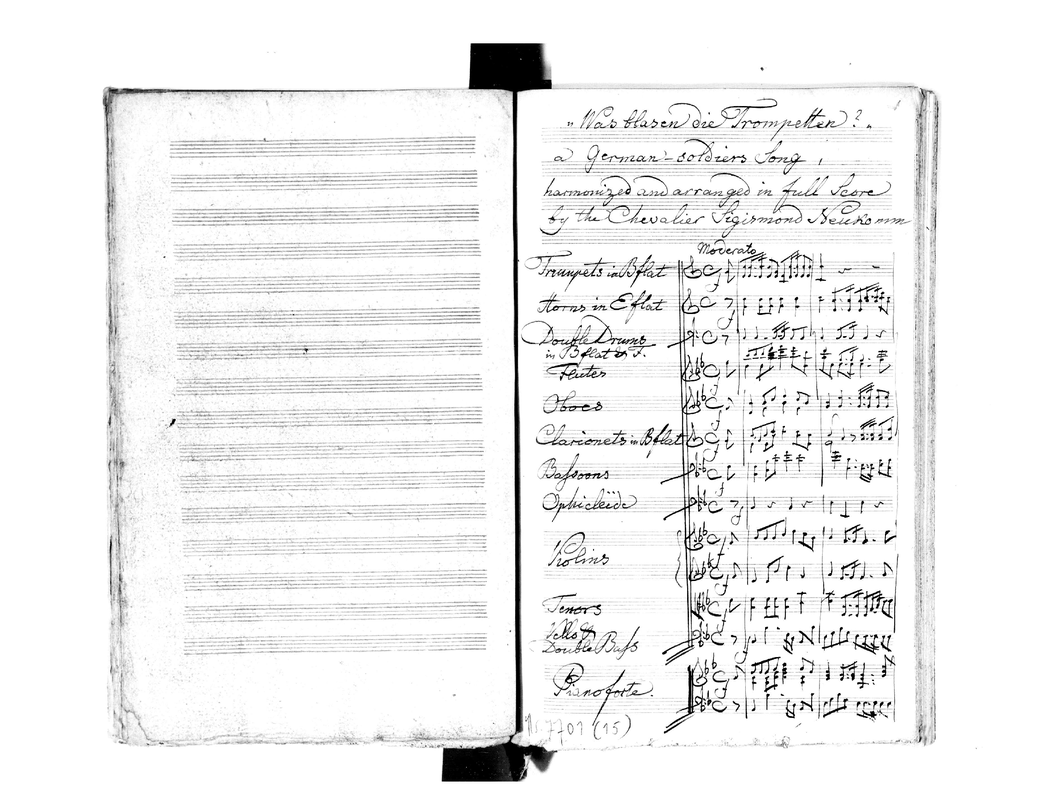 „Was blasen die Trompetten?„
a German-soldiers Song,
harmonized and arranged in full Score
by the Chevalier Sigismond Neukomm
Moderato
Trumpets in B flat
Horns in E flat
Double Drums
in B flat & F.
Flutes
Oboes
Clarionets in B flat
Bassoons
Ophicleïde
Violins
Tenors
Vello &
Double Bass
Pianoforte.
7701 (15)